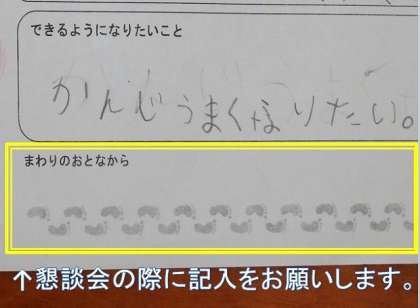 できるようになりたいこと
かんじうまくなりたい。
まわりのおとなから
↑懇談会の際に記入をお願いします。